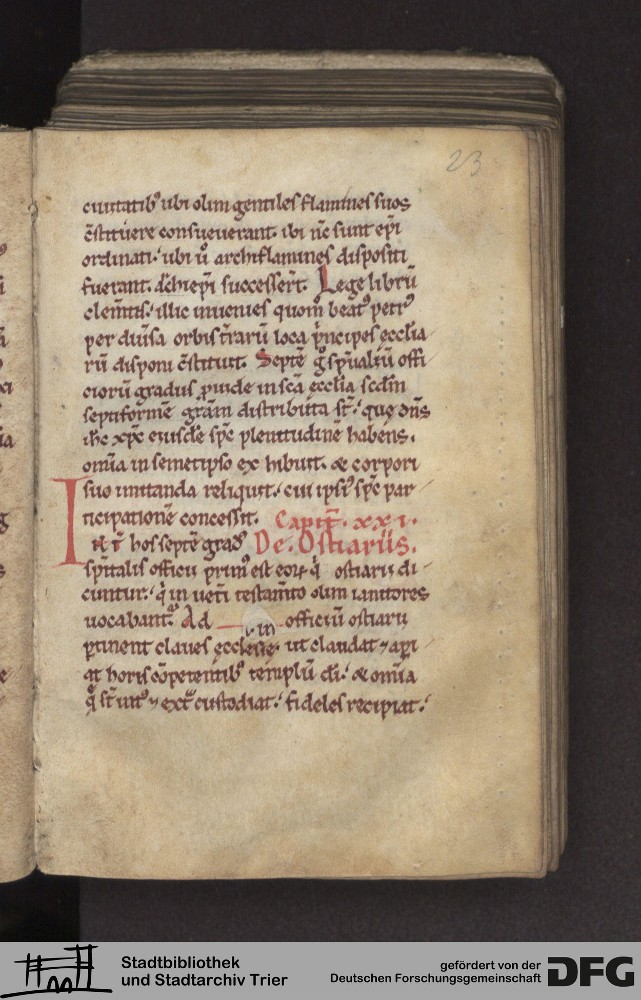 23
ciuitatib; ubi olim gentiles flamines suos
c̄stituere consueuerant. ibi nc̄ sunt ep̄i
ordinati. ubi ů archiflamines dispositi
fuerant. archiep̄i successer̄t. Lege librū
clem̄tis. illic inuenies quom̄ beat᷒ petr᷒
per diůsa orbis t̄rarū loca p̄ncipes ecclia
rū disponi c̄stituit. Septē g̊ sp̄ualiū offi
ciorū gradus ꝓuide in sc̄a ecclia scdm̄
septiformē grām distributa st̄. quę dn̄s
ih̄c xp̄c eiusdē sp̄c plenitudinē habens.
om̄ia in semetipso exhibuit. & corpori
suo imitanda reliquit. cui ipsi᷒ sp̄c par
ticipationē concessit. Capit̄. xxi.
Int̄ hos septē grad᷒ De. Ostiariis.
sp̄italis officii prim᷒ est eoꝝ qͥ ostiarii di
cuntur. qͥ in uet̄i testam̄to olim ianitores
uocabant᷑. Ad in officiū ostiarii
ꝑtinent claues ecclesie. ut claudat ⁊ api
at horis cōpetentib; templū d̄i. & om̄ia
q̄ st̄ int᷒ ⁊ ext᷑ custodiat. fideles recipiat.
Stadtbibliothek
und Stadtarchiv Trier
gefördert von der
Deutschen Forschungsgemeinschaft
DFG